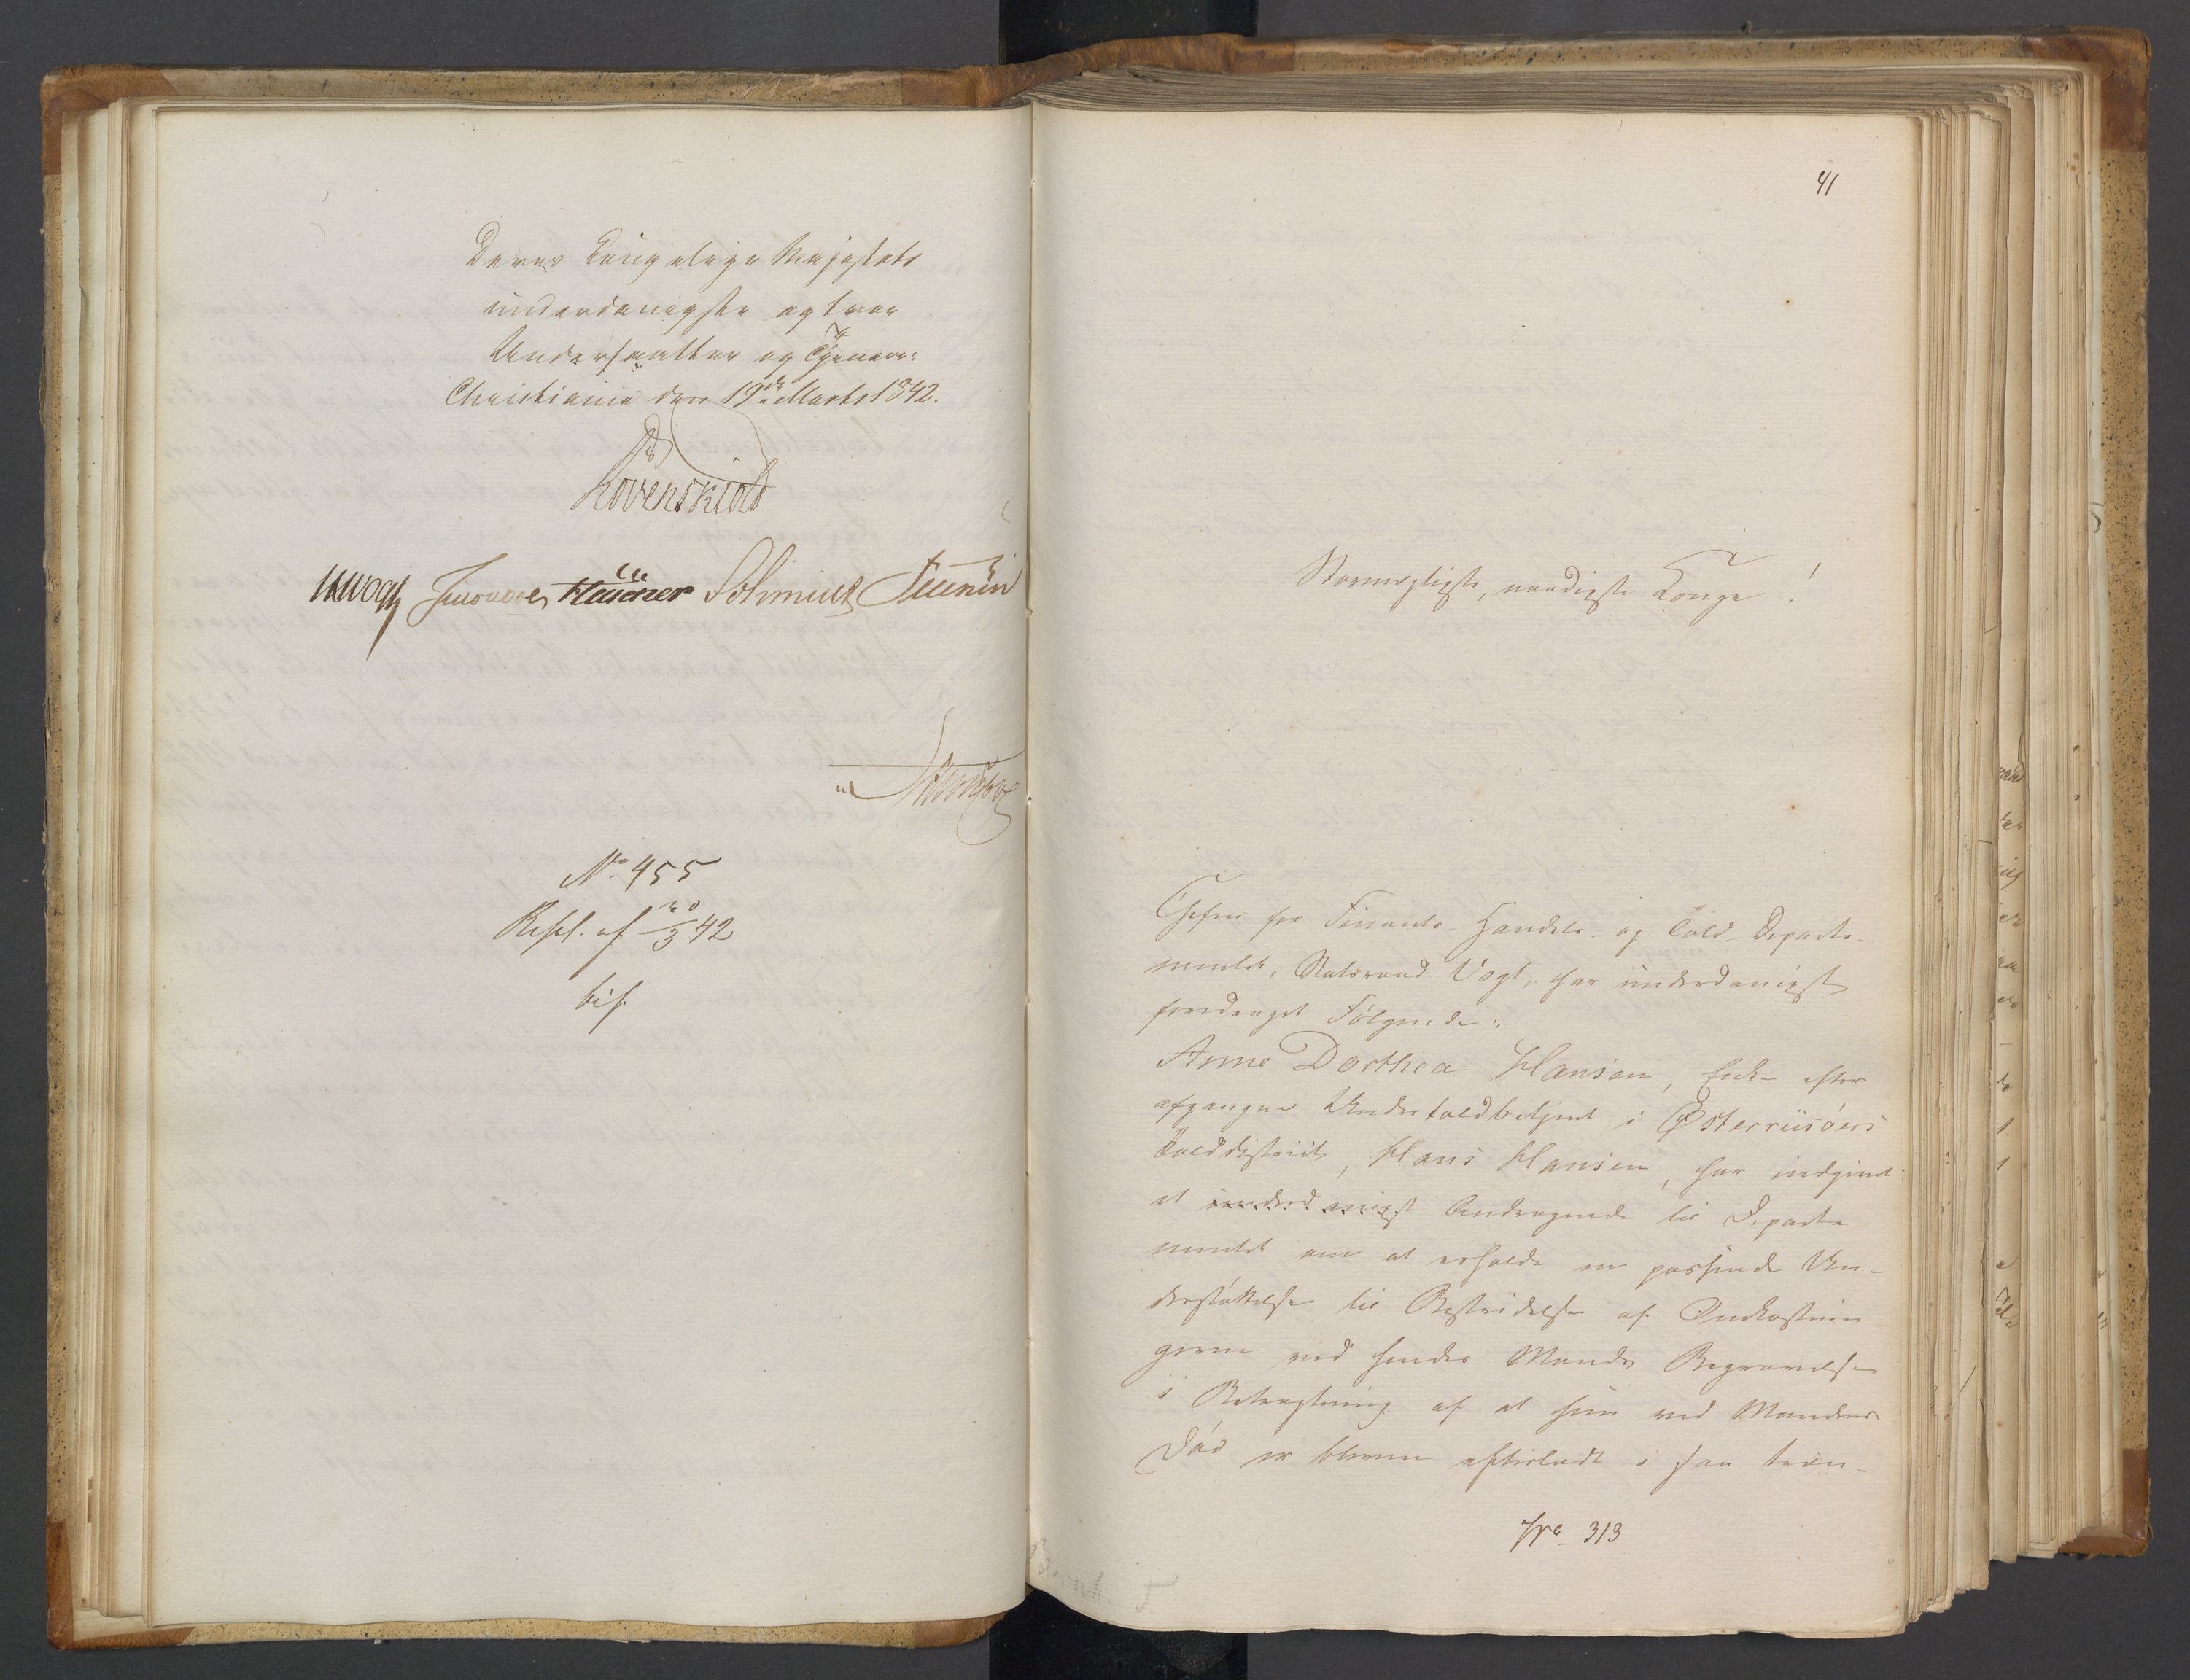 Deres Kongelige Majestæts
underdanigste og troe
Undersaatter og Tjenere:
Christiania den 19de Marts 1842.
Løvenskiold
JHVogt Hausner Schmidt
No 455
Resl. af 30/3 42
bif.
41
Stormægtigste, naadigste Konge!
Chefen for Finants- Handels- og Told-Departe-
mentet, Statsraad Vogt, har underdanigst
foredraget Følgende:
Anne Dorthea Hansen, Enke efter
afgangne Undertoldbetjent i Østerriisøers
Tolddistrict, Hans Hansen, har indgivet
et underdanigst Andragende til Departe-
mentet om at erholde en passende Un-
derstøttelse til Bestridelse af Omkostnin-
gerne ved hendes Mands Begravelse
i Betragtning af at hun ved Mandens
Død er bleven efterladt i saa træn-
No 313